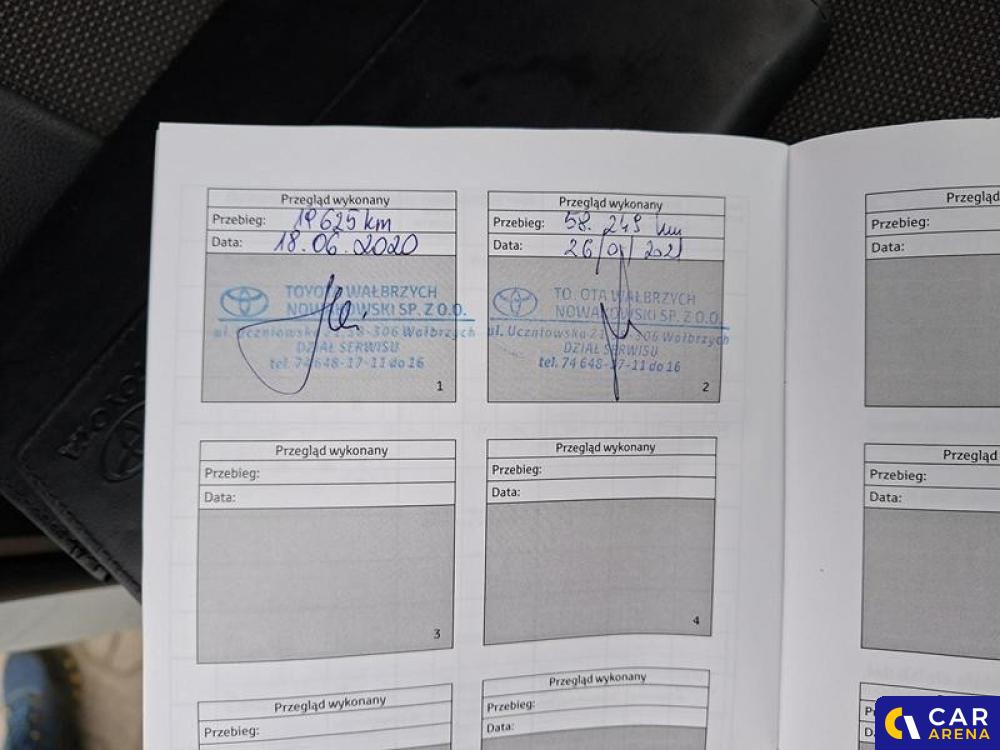 Przegląd wykonany
Przebieg: 19625 km
Data: 18.06.2020
TOYOTA WAŁBRZYCH
NOWAKOWSKI SP. Z O.O.
ul. Uczniowska 21, 58-306 Wałbrzych
DZIAŁ SERWISU
tel. 74 648-17-11 do 16
1
Przegląd wykonany
Przebieg: 58.249 km
Data:
TOYOTA WAŁBRZYCH
NOWAKOWSKI SP. Z O.O.
ul. Uczniowska 21, 58-306 Wałbrzych
DZIAŁ SERWISU
tel. 74 648-17-11 do 16
2
Przegląd
Przebieg:
Data:
Przegląd wykonany
Przebieg:
Data:
3
Przegląd wykonany
Przebieg:
Data:
4
Przegląd
Przebieg:
Data:
Przegląd wykonany
Przebieg:
Data:
Przegląd wykonany
Przebieg:
Data:
CAR
ARENA